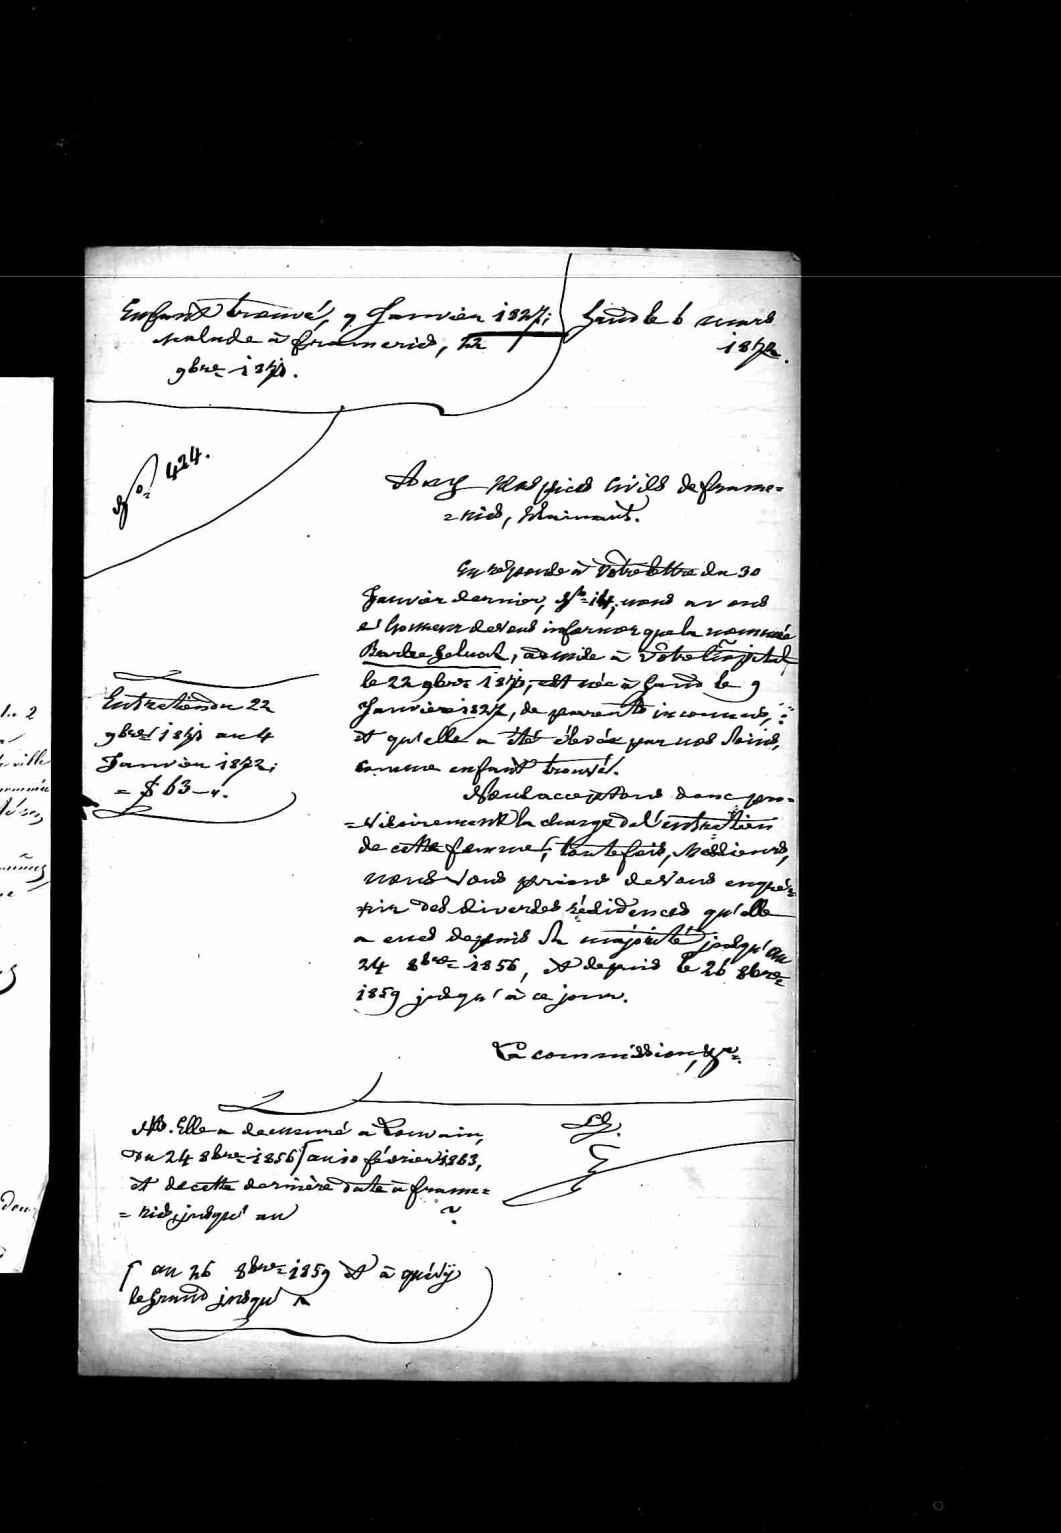 Enfant trouvé, 9 Janvier 1827;
malade à frameries, 22
9bre 1871.
Gand le 6 mars
1872.
No. 424.
Aux Hospices civils de frame=
=ries, Hainaut.
En réponse à votre lettre du 30
Janvier dernier, No 14, nous avons
l'honneur de vous informer que la nommée
Barbe, admise à votre hôpital
le 22 9bre 1871, est née à Gand le 9
Janvier 1827, de parents inconnus,
et qu'elle a été élevée par nos soins,
comme enfant trouvé.
Entretien du 22
9bre 1871 au 4
Janvier 1872;
= 63
Nous acceptons donc pro=
=visoirement la charge de l'entretien
de cette femme; toutefois, Messieurs,
nous vous prions de vous enqué=
rir des diverses résidences qu'elle
a eues depuis sa majorité jusqu'au
24 8bre 1856, et depuis le 26 8bre
1859 jusqu'à ce jour.
La commission, &a.
NB. Elle a demeuré à Louvain,
du 24 8bre 1856 ⌈ au 10 février 1863,
et de cette dernière date à frame=
=ries, jusqu'au ?
⌈ au 26 8bre 1859 et à quévy
le Grand jusqu'